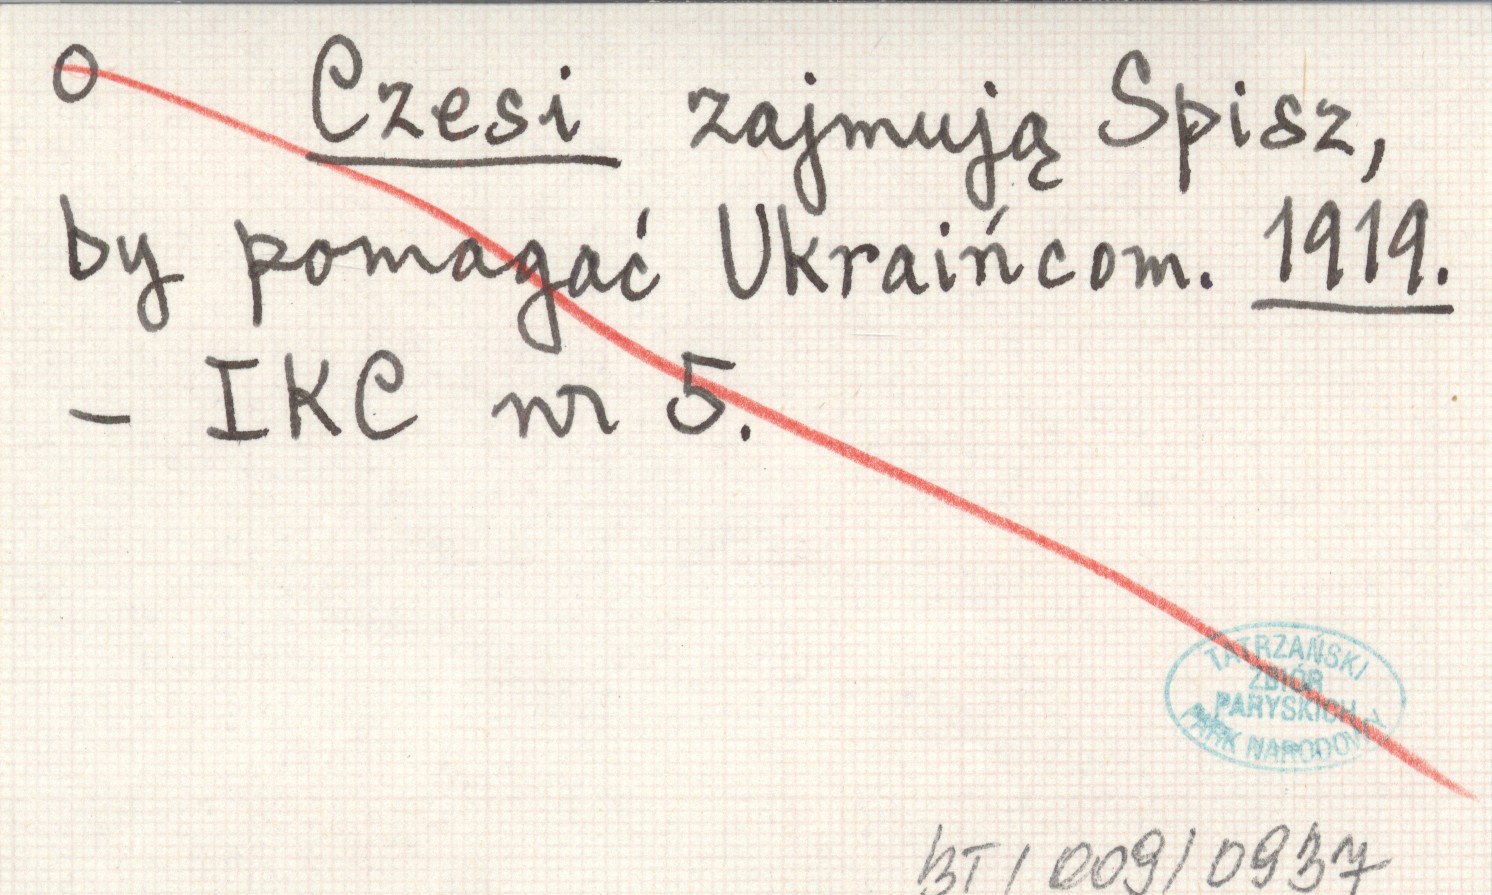 O Czesi zajmują Spisz,
by pomagać Ukraińcom. 1919.
- IKC nr 5.
TATRZAŃSKI
ZBIÓR
PARYSKICH
PARK NARODOWY
BT/009/0937